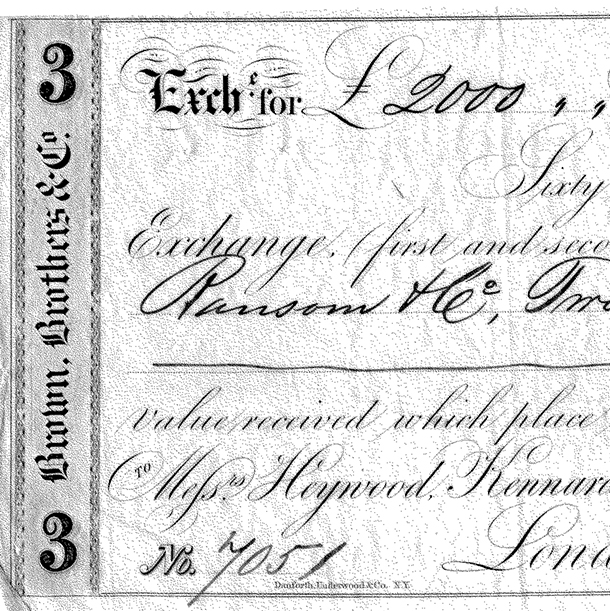 3
Brown, Brothers & Co.
3
Exch.e for £ 2000 „ „
Sixty
Exchange, (first and seco
Ransom & Co, Two
value received which place
TO Messrs Heywood, Kennard
No. 7051
Lond
Danforth, Underwood & Co. N.Y.